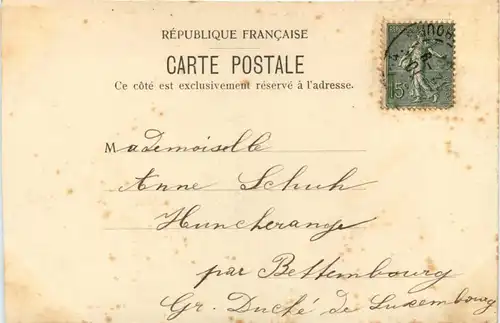 RÉPUBLIQUE FRANÇAISE
CARTE POSTALE
Ce côté est exclusivement réservé à l'adresse.
Mademoiselle
Anne Schuh
Huncherange
par Bettembourg
Gr. Duché de Luxembourg
15c